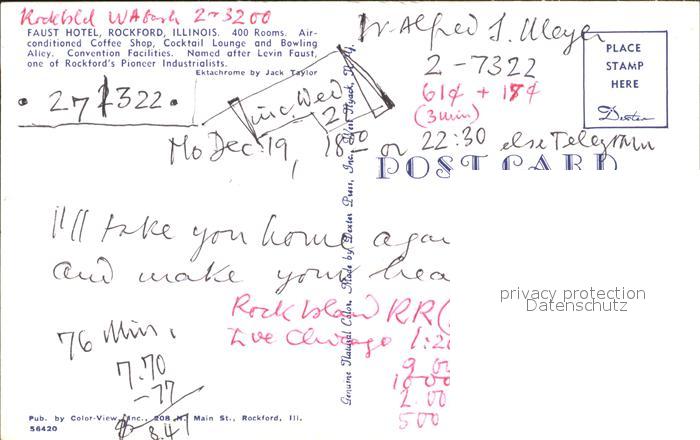 Rockbld WAbash 2-3200
FAUST HOTEL, ROCKFORD, ILLINOIS. 400 Rooms. Air-
conditioned Coffee Shop, Cocktail Lounge and Bowling
Alley. Convention Facilities. Named after Levin Faust,
one of Rockford's Pioneer Industrialists.
Ektachrome by Jack Taylor
Dr Alfred S. Meyer
2-7322
61¢ + 17¢
(3min)
PLACE
STAMP
HERE
Dexter
• 27322 •
inc. Wed
2
Mo Dec. 19, 18:00 or 22:30 else Telegramm
POST CARD
I'll take you home agai
and make your hea
Rock Island RR(
Lve Chicago 1:2
9 00
10 00
2.00
500
76 Min.
7.70
-77
8.47
privacy protection
Datenschutz
Genuine Natural Color. Made by Dexter Press, Inc., West Nyack, N.Y.
Pub. by Color-View, Inc., 208 N. Main St., Rockford, Ill.
56420